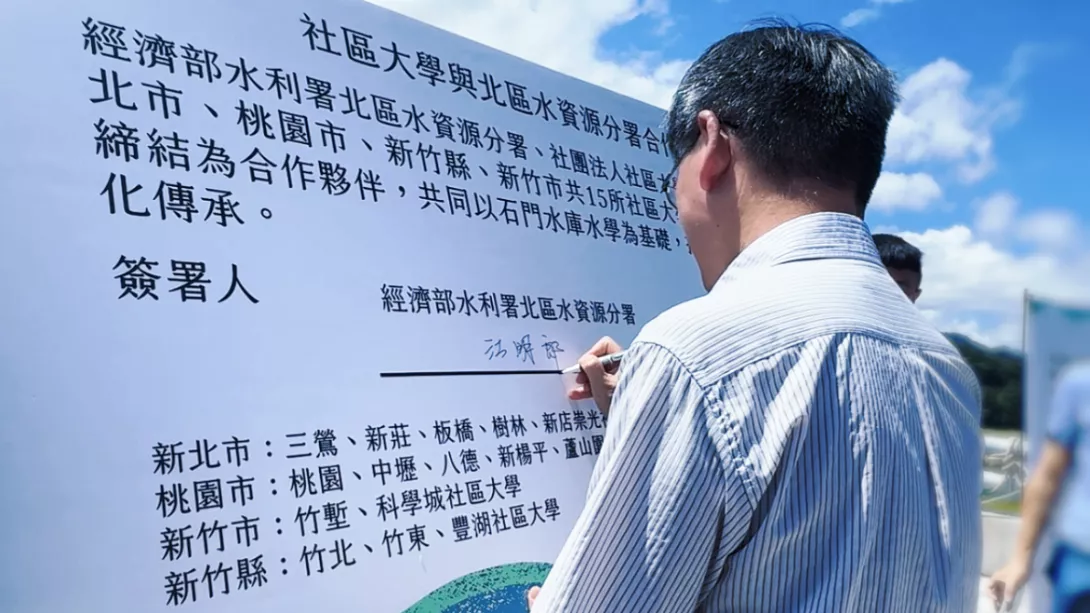 社區大學與北區水資源分署合
經濟部水利署北區水資源分署、社團法人社區
北市、桃園市、新竹縣、新竹市共15所社區大
締結為合作夥伴，共同以石門水庫水學為基礎，
化傳承。
簽署人
經濟部水利署北區水資源分署
江明郎
新北市：三鶯、新莊、板橋、樹林、新店崇光
桃園市：桃園、中壢、八德、新楊平、蘆山園
新竹市：竹塹、科學城社區大學
新竹縣：竹北、竹東、豐湖社區大學